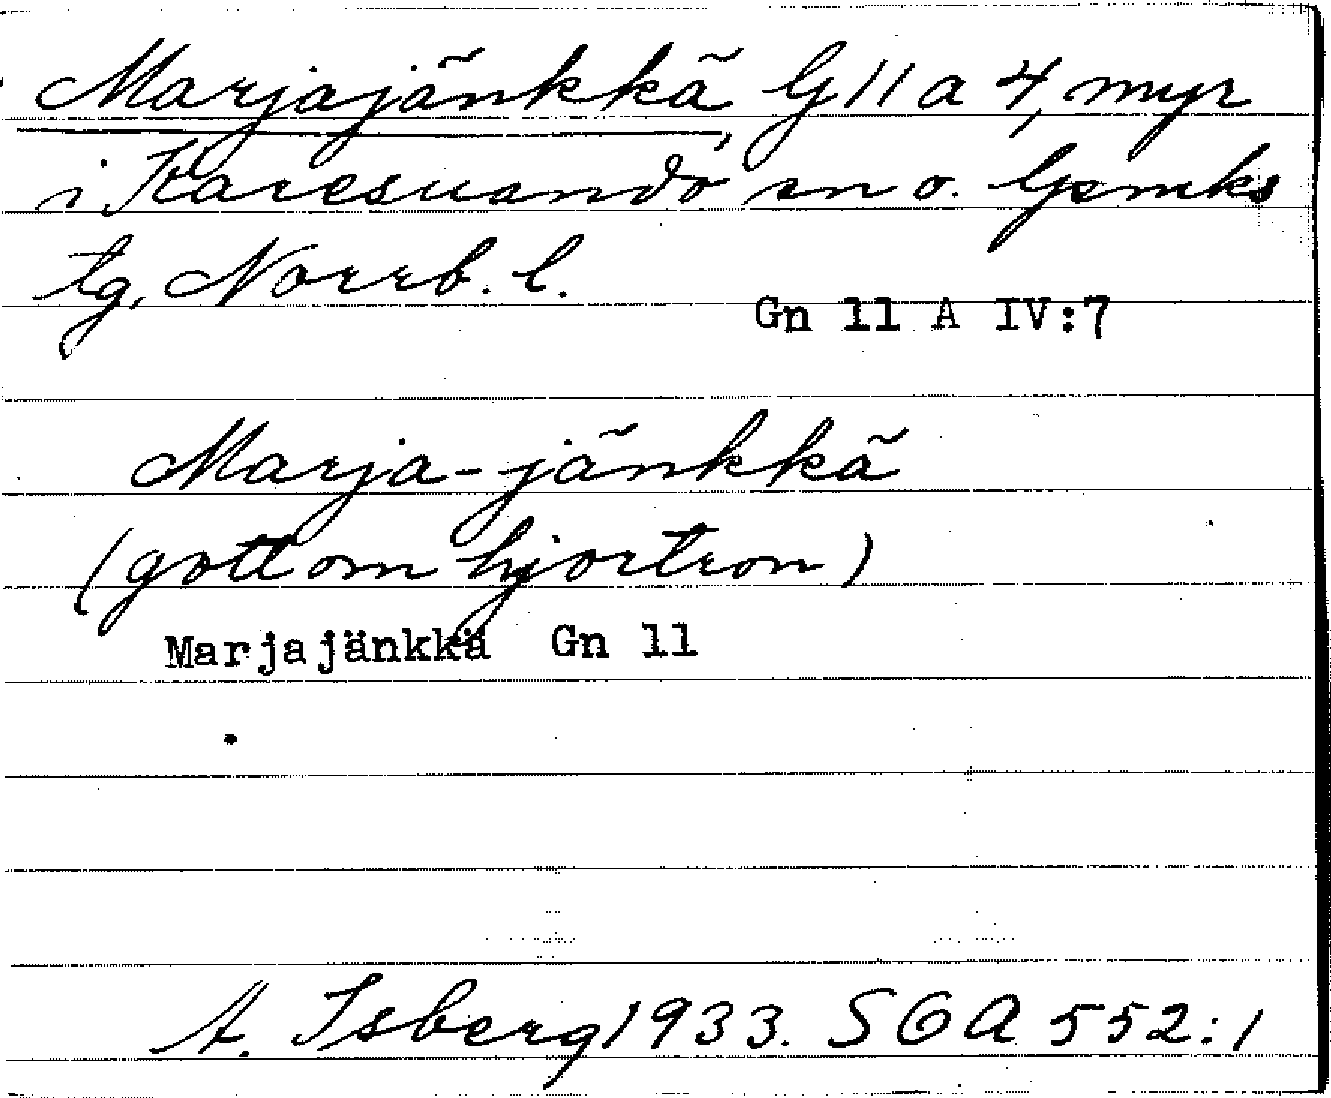 Marjajänkkä, G 11 a 4, myr
i Karesuando sn o. lpmks
tg, Norrb. l.
Gn 11 A IV:7
Marja-jänkkä
(gott om hjortron)
Marjajänkkä Gn 11
A. Isberg 1933. SOA 552:1